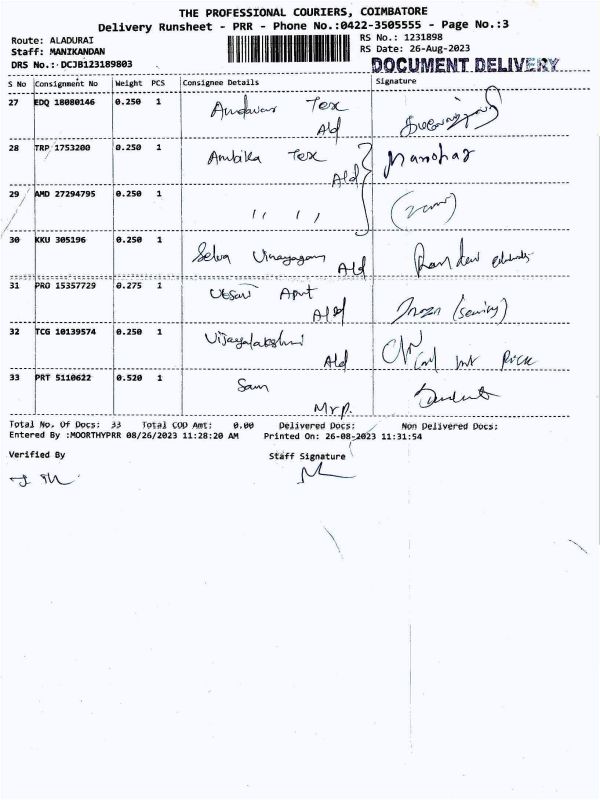 THE PROFESSIONAL COURIERS, COIMBATORE
Delivery Runsheet - PRR - Phone No.:0422-3505555 - Page No.:3
Route: ALADURAI
Staff: MANIKANDAN
DRS No.: DCJB123189803
RS No.: 1231898
RS Date: 26-Aug-2023
DOCUMENT DELIVERY
S No Consignment No Weight PCS Consignee Details Signature
27 EDQ 18080146 0.250 1 Tex
Ald
28 TRP 1753200 0.250 1 Ambika Tex Manohar
Ald
29 AMD 27294795 0.250 1 " "
30 KKU 305196 0.250 1 Selva Vinayagam
Ald
31 PRO 15357729 0.275 1 Apmt
Ald
32 TCG 10139574 0.250 1 Vijayalakshmi
Ald
33 PRT 5110622 0.520 1 Sam
Mrp.
Total No. Of Docs: 33 Total COD Amt: 0.00 Delivered Docs: Non Delivered Docs:
Entered By :MOORTHYPRR 08/26/2023 11:28:20 AM Printed On: 26-08-2023 11:31:54
Verified By Staff Signature